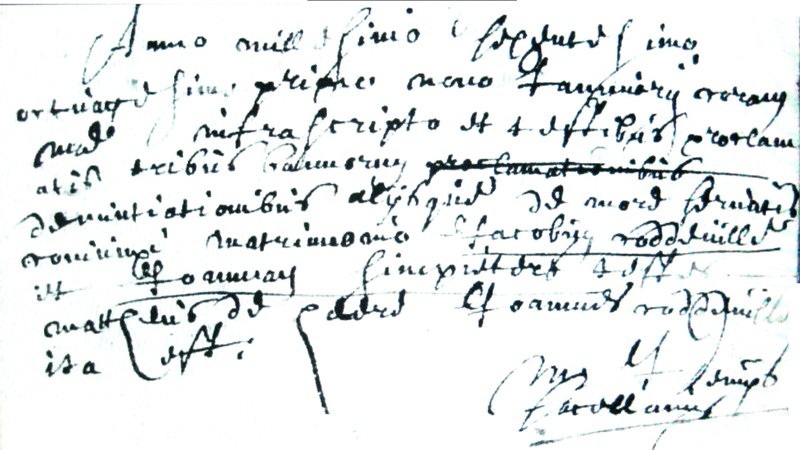 Anno millesimo sexentesimo
octuagesimo primo nono Januarij coram
me infrascripto et testibus proclam
atis tribus bannorum proclamationibus
denuntiationibus alijsque de more servatis
coniunxi matrimonio Jacobum roddeville
et Joannam simpliciter testes
mattheus de Joannes roddeville
ita est:
sacellanus